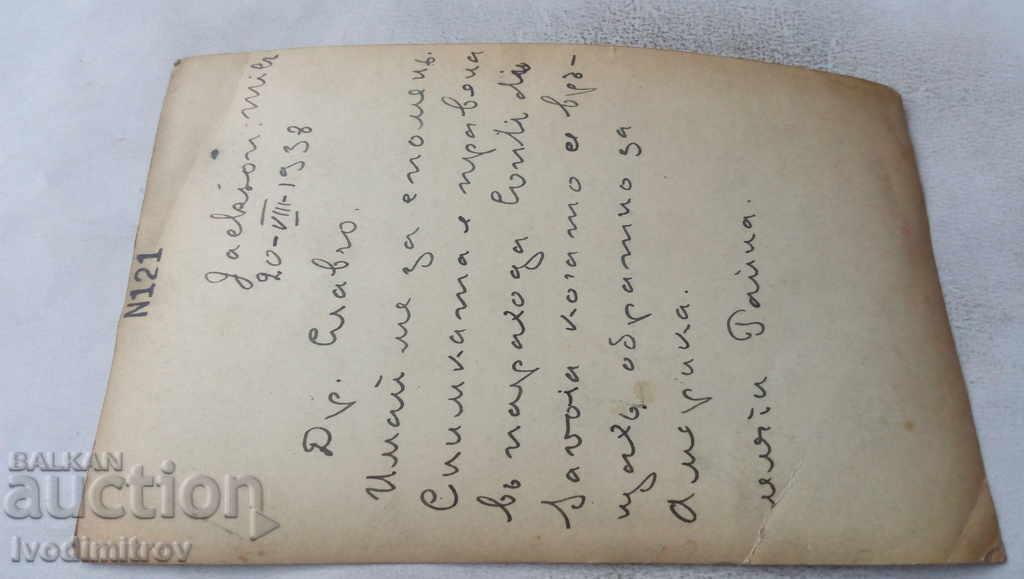 N121
Jackson: mich
20-VIII-1938
Др. Славчо.
Имай ме за споменъ.
Снимката е правена
въ парахода Conti di
Savoia когато е връ-
щахъ обратно за
Америка.
Райна.
BALKAN
auction
Ivodimitrov